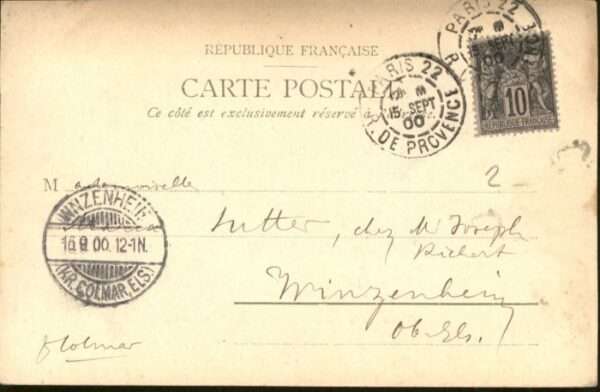 PARIS 22
R. DE PROVENCE
15 SEPT
00
10
RÉPUBLIQUE FRANÇAISE
RÉPUBLIQUE FRANÇAISE
CARTE POSTALE
Ce côté est exclusivement réservé à l'adresse.
PARIS 22
15 SEPT
00
R. DE PROVENCE
Mademoiselle
2
WINZENHEIM
16.9.00.12-1N.
(KR. COLMAR, ELS)
Maria
Sutter, chez M Joseph
Richert
Winzenheim
Ob. Els.
Colmar